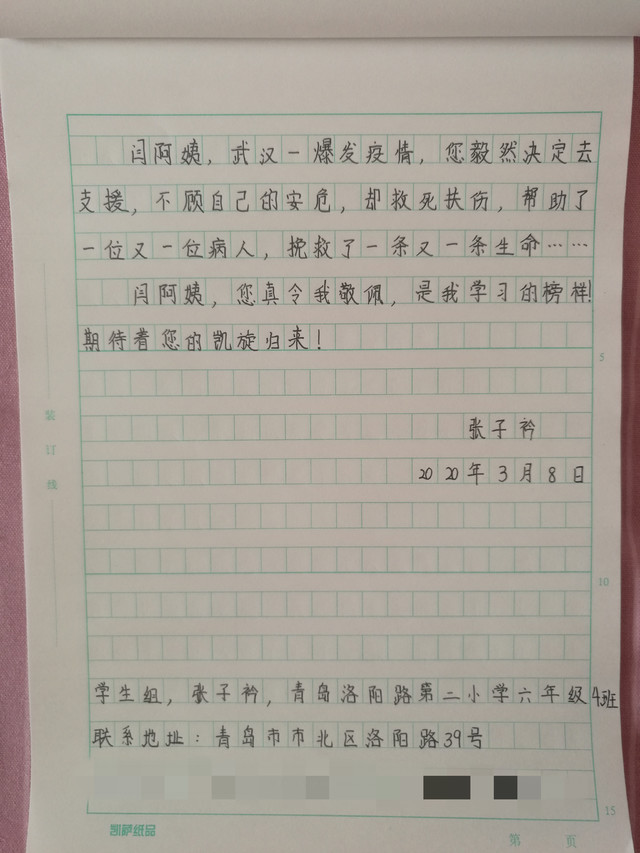 闫阿姨，武汉一爆发疫情，您毅然决定去
支援，不顾自己的安危，却救死扶伤，帮助了
一位又一位病人，挽救了一条又一条生命……
闫阿姨，您真令我敬佩，是我学习的榜样！
期待着您的凯旋归来！
5
张子衿
2020年3月8日
10
学生组，张子衿，青岛洛阳路第二小学六年级4班
联系地址：青岛市市北区洛阳路39号
15
凯萨纸品
第 页
装订线